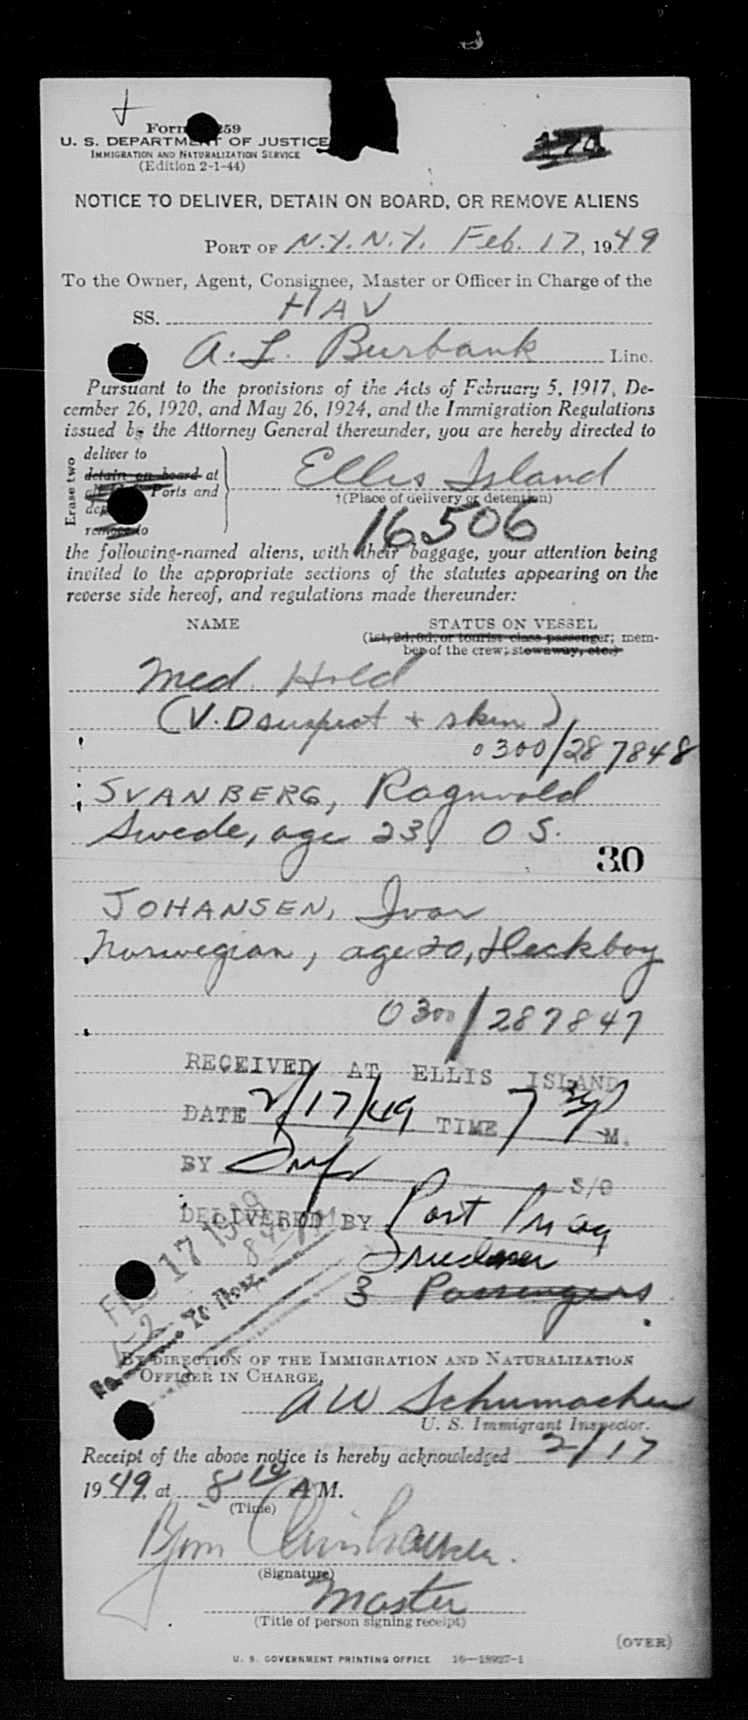 Form 259
U. S. DEPARTMENT OF JUSTICE
IMMIGRATION AND NATURALIZATION SERVICE
(Edition 2-1-44)
NOTICE TO DELIVER, DETAIN ON BOARD, OR REMOVE ALIENS
PORT OF N.Y. N.Y. Feb. 17, 1949
To the Owner, Agent, Consignee, Master or Officer in Charge of the
SS. HAV
A. L. Burbank Line.
Pursuant to the provisions of the Acts of February 5, 1917, De-
cember 26, 1920, and May 26, 1924, and the Immigration Regulations
issued by the Attorney General thereunder, you are hereby directed to
Erase two
deliver to
detain on board at
Ports and
remove to
Ellis Island
†(Place of delivery or detention)
16506
the following-named aliens, with their baggage, your attention being
invited to the appropriate sections of the statutes appearing on the
reverse side hereof, and regulations made thereunder:
NAME STATUS ON VESSEL
(1st, 2d, 3d, or tourist class passenger; mem-
ber of the crew; stowaway, etc.)
Med. Hold
(V.D suspect + skin)
0300/287848
SVANBERG, Ragnvald
Swede, age 23, O S.
30
JOHANSEN, Ivar
Norwegian, age 20, Deckboy
0300/287847
RECEIVED AT ELLIS ISLAND
DATE 2/17/49 TIME 7 M.
BY S/O
DELIVERED BY
3 Passengers
FEB 17 1949
BY DIRECTION OF THE IMMIGRATION AND NATURALIZATION
OFFICER IN CHARGE,
A W Schumacher
U. S. Immigrant Inspector.
Receipt of the above notice is hereby acknowledged 2/17
1949, at 8 10 A M.
(Time)
Bjorn
(Signature)
Master
(Title of person signing receipt)
(OVER)
U. S. GOVERNMENT PRINTING OFFICE 16—18927-1